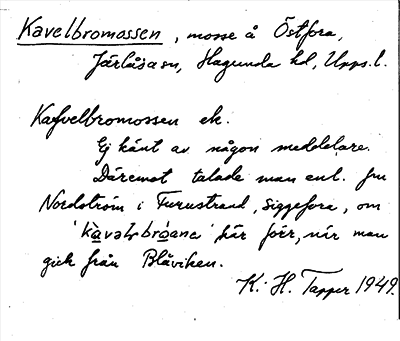 Kavelbromossen, mosse å Östfora,
Järlåsa sn, Hagunda hd, Upps. l.
Kafvelbromossen ek.
Ej känt av någon meddelare.
Däremot talade man enl. fru
Nordström i Furustrand, Siggefora, om
'kàvəlbròane' här förr, när man
gick från Blåviken.
K. H. Tapper 1949.